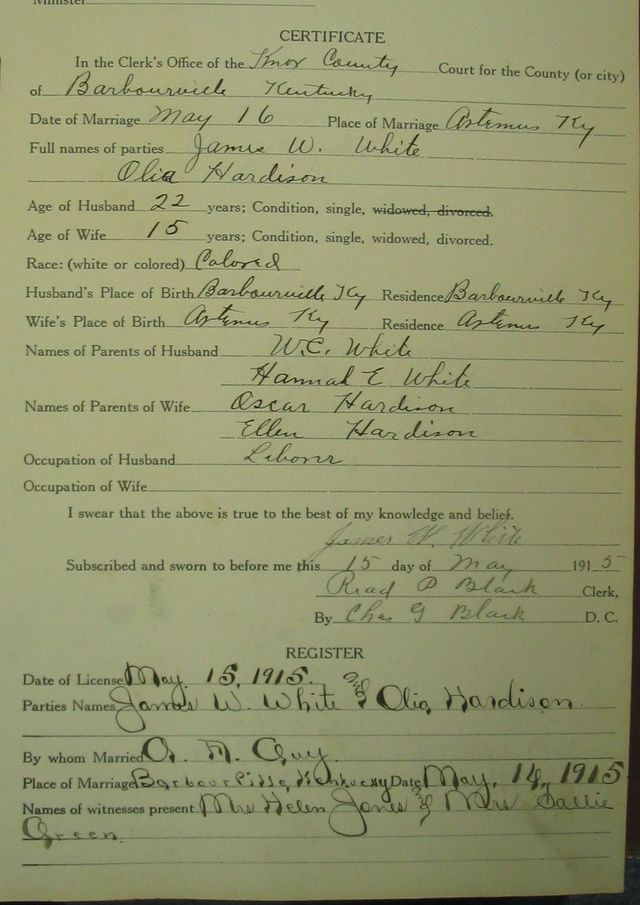 Minister
CERTIFICATE
In the Clerk's Office of the Knox County Court for the County (or city)
of Barbourville Kentucky
Date of Marriage May 16 Place of Marriage Artemus Ky
Full names of parties James W. White
Olia Hardison
Age of Husband 22 years; Condition, single, widowed, divorced.
Age of Wife 15 years; Condition, single, widowed, divorced.
Race: (white or colored) Colored
Husband's Place of Birth Barbourville Ky Residence Barbourville Ky
Wife's Place of Birth Artemus Ky Residence Artemus Ky
Names of Parents of Husband W.C. White
Hannah E White
Names of Parents of Wife Oscar Hardison
Ellen Hardison
Occupation of Husband Liborer
Occupation of Wife
I swear that the above is true to the best of my knowledge and belief.
James W. White
Subscribed and sworn to before me this 15 day of May 1915
Read P Black Clerk,
By Chas G Black D. C.
REGISTER
Date of License May. 15, 1915.
Parties Names James W. White and Olia Hardison.
By whom Married A. Guy.
Place of Marriage Barbourville, Kentucky Date May, 1915
Names of witnesses present Mrs Helen Jones & Mrs Sallie
Green.